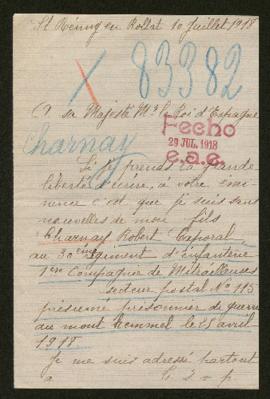 St Rémy en Rollat 10 Juillet 1918
X 83382
A sa Majesté Mr le Roi d'Espagne
Fecho
29 JUL. 1918
e.a.e.
Charnay
Si je prends la grande
liberté d'écrire, a votre émi-
nence c'est que je suis sans
nouvelles de mon fils
Charnay Robert Caporal
au 30eme régiment d'infanterie
1ere Compagnie de Mitrailleuses
secteur postal No 115
présumé prisonnier de guerre
au mont Kemmel le 25 avril
1918
Je me suis adressé partout